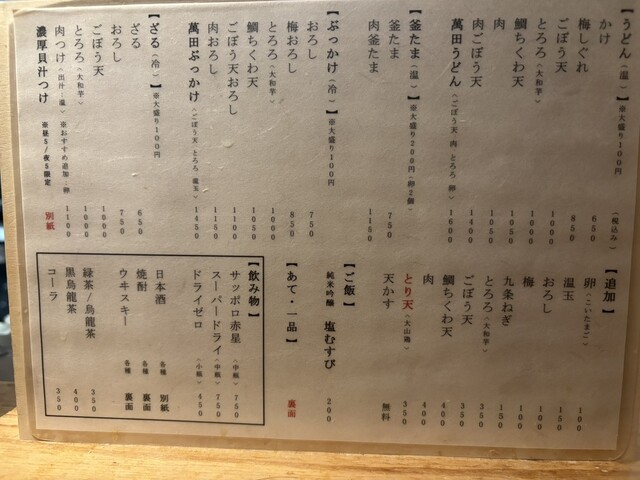 【うどん(温)】※大盛り100円 (税込み)
かけ 650
梅しぐれ 850
ごぼう天 1000
とろろ(大和芋) 1000
鯛ちくわ天 1050
肉 1050
肉ごぼう天 1400
萬田うどん(ごぼう天 肉 とろろ 卵) 1600
【釜たま(温)】※大盛り200円(卵2個)
釜たま 750
肉釜たま 1150
【ぶっかけ(冷)】※大盛り100円
おろし 750
梅おろし 850
とろろ(大和芋) 1000
鯛ちくわ天 1050
ごぼう天おろし 1100
肉おろし 1150
萬田ぶっかけ(ごぼう天 肉 とろろ 温玉) 1450
【ざる(冷)】※大盛り100円
ざる 650
おろし 750
ごぼう天 1000
とろろ(大和芋) 1000
肉つけ(出汁:温) ※おすすめ追加:卵 1100
濃厚貝汁つけ ※昼5/夜5限定 別紙
【追加】
卵(こいたまご) 100
温玉 150
おろし 100
梅 100
九条ねぎ 150
とろろ(大和芋) 350
ごぼう天 350
鯛ちくわ天 400
肉 400
とり天(大山鶏) 350
天かす 無料
【ご飯】
純米吟醸 塩むすび 200
【あて・一品】 裏面
【飲み物】
サッポロ赤星(中瓶) 750
スーパードライ(中瓶) 750
ドライゼロ(小瓶) 450
日本酒 各種 別紙
焼酎 各種 裏面
ウヰスキー 各種 裏面
緑茶/烏龍茶 350
黒烏龍茶 400
コーラ 350